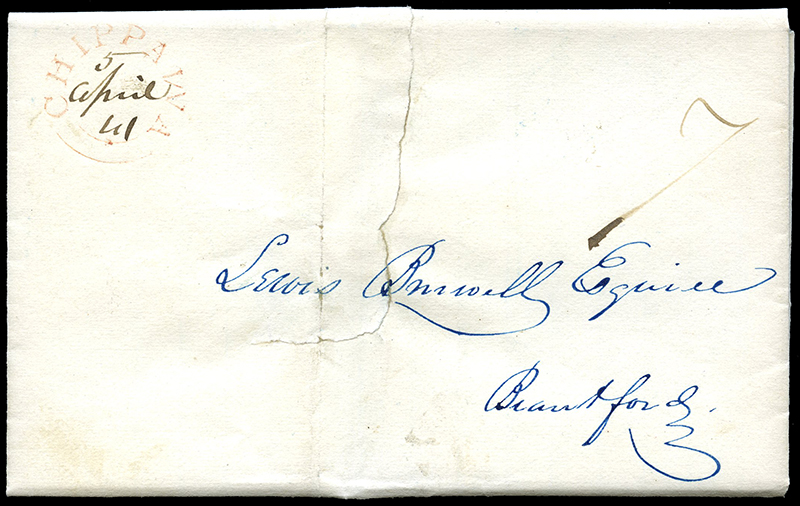 CHIPPAWA
5
April
41
7
Lewis Burwell Esquire
Brantford.